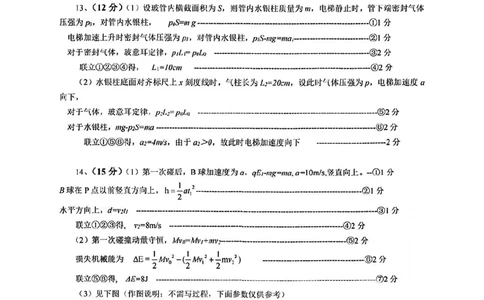 13、(12 分)(1)设玻管内横截面积为 S，则管内水银柱质量为 m，电梯静止时，管下端密封气体
压强为 p₀，对管内水银柱， p₀S=mg ------①1 分
电梯加速上升时密封气体压强为 p₁，对管内水银柱，p₁S-mg=ma₁ ------②2 分
对于密封气体，玻意耳定律，p₁L₁=p₀L₀ ------③2 分
联立①②③④得， L₁=10cm ------④2 分
(2) 水银柱底面对齐标尺上 x 刻度线时，气柱长为 L₂=20cm，设此时气体压强为 p，电梯加速度 a
向下，
对于气体，玻意耳定律，p₂L₂=p₀L₀ ------⑤2 分
对于水银柱，mg-p₂S=ma ------⑥2 分
联立①⑤⑥得，a₂=4m/s，由于 a₂＞0，故此时电梯加速度向下 ------2 分
14、(15 分)(1) 第一次碰后，B 球加速度为 a，qE₁-mg=ma, a=10m/s,竖直向上。--①1 分
B 球在 P 点以前竖直方向上，h=1/2at₁² ------②1 分
水平方向上，d=v₂t₁ ------③1 分
联立①②③得，v₂=8m/s ------④2 分
(2) 第一次碰撞动量守恒，Mv₀=Mv₁+mv₂ ------⑤2 分
损失机械能为 ΔE=1/2Mv₀²-(1/2Mv₁²+1/2mv₂²) ------⑥2 分
联立⑤⑥得，ΔE=8J ------⑦2 分
(3) 见下图（作图说明：不需写过程，下面参数仅供参考）